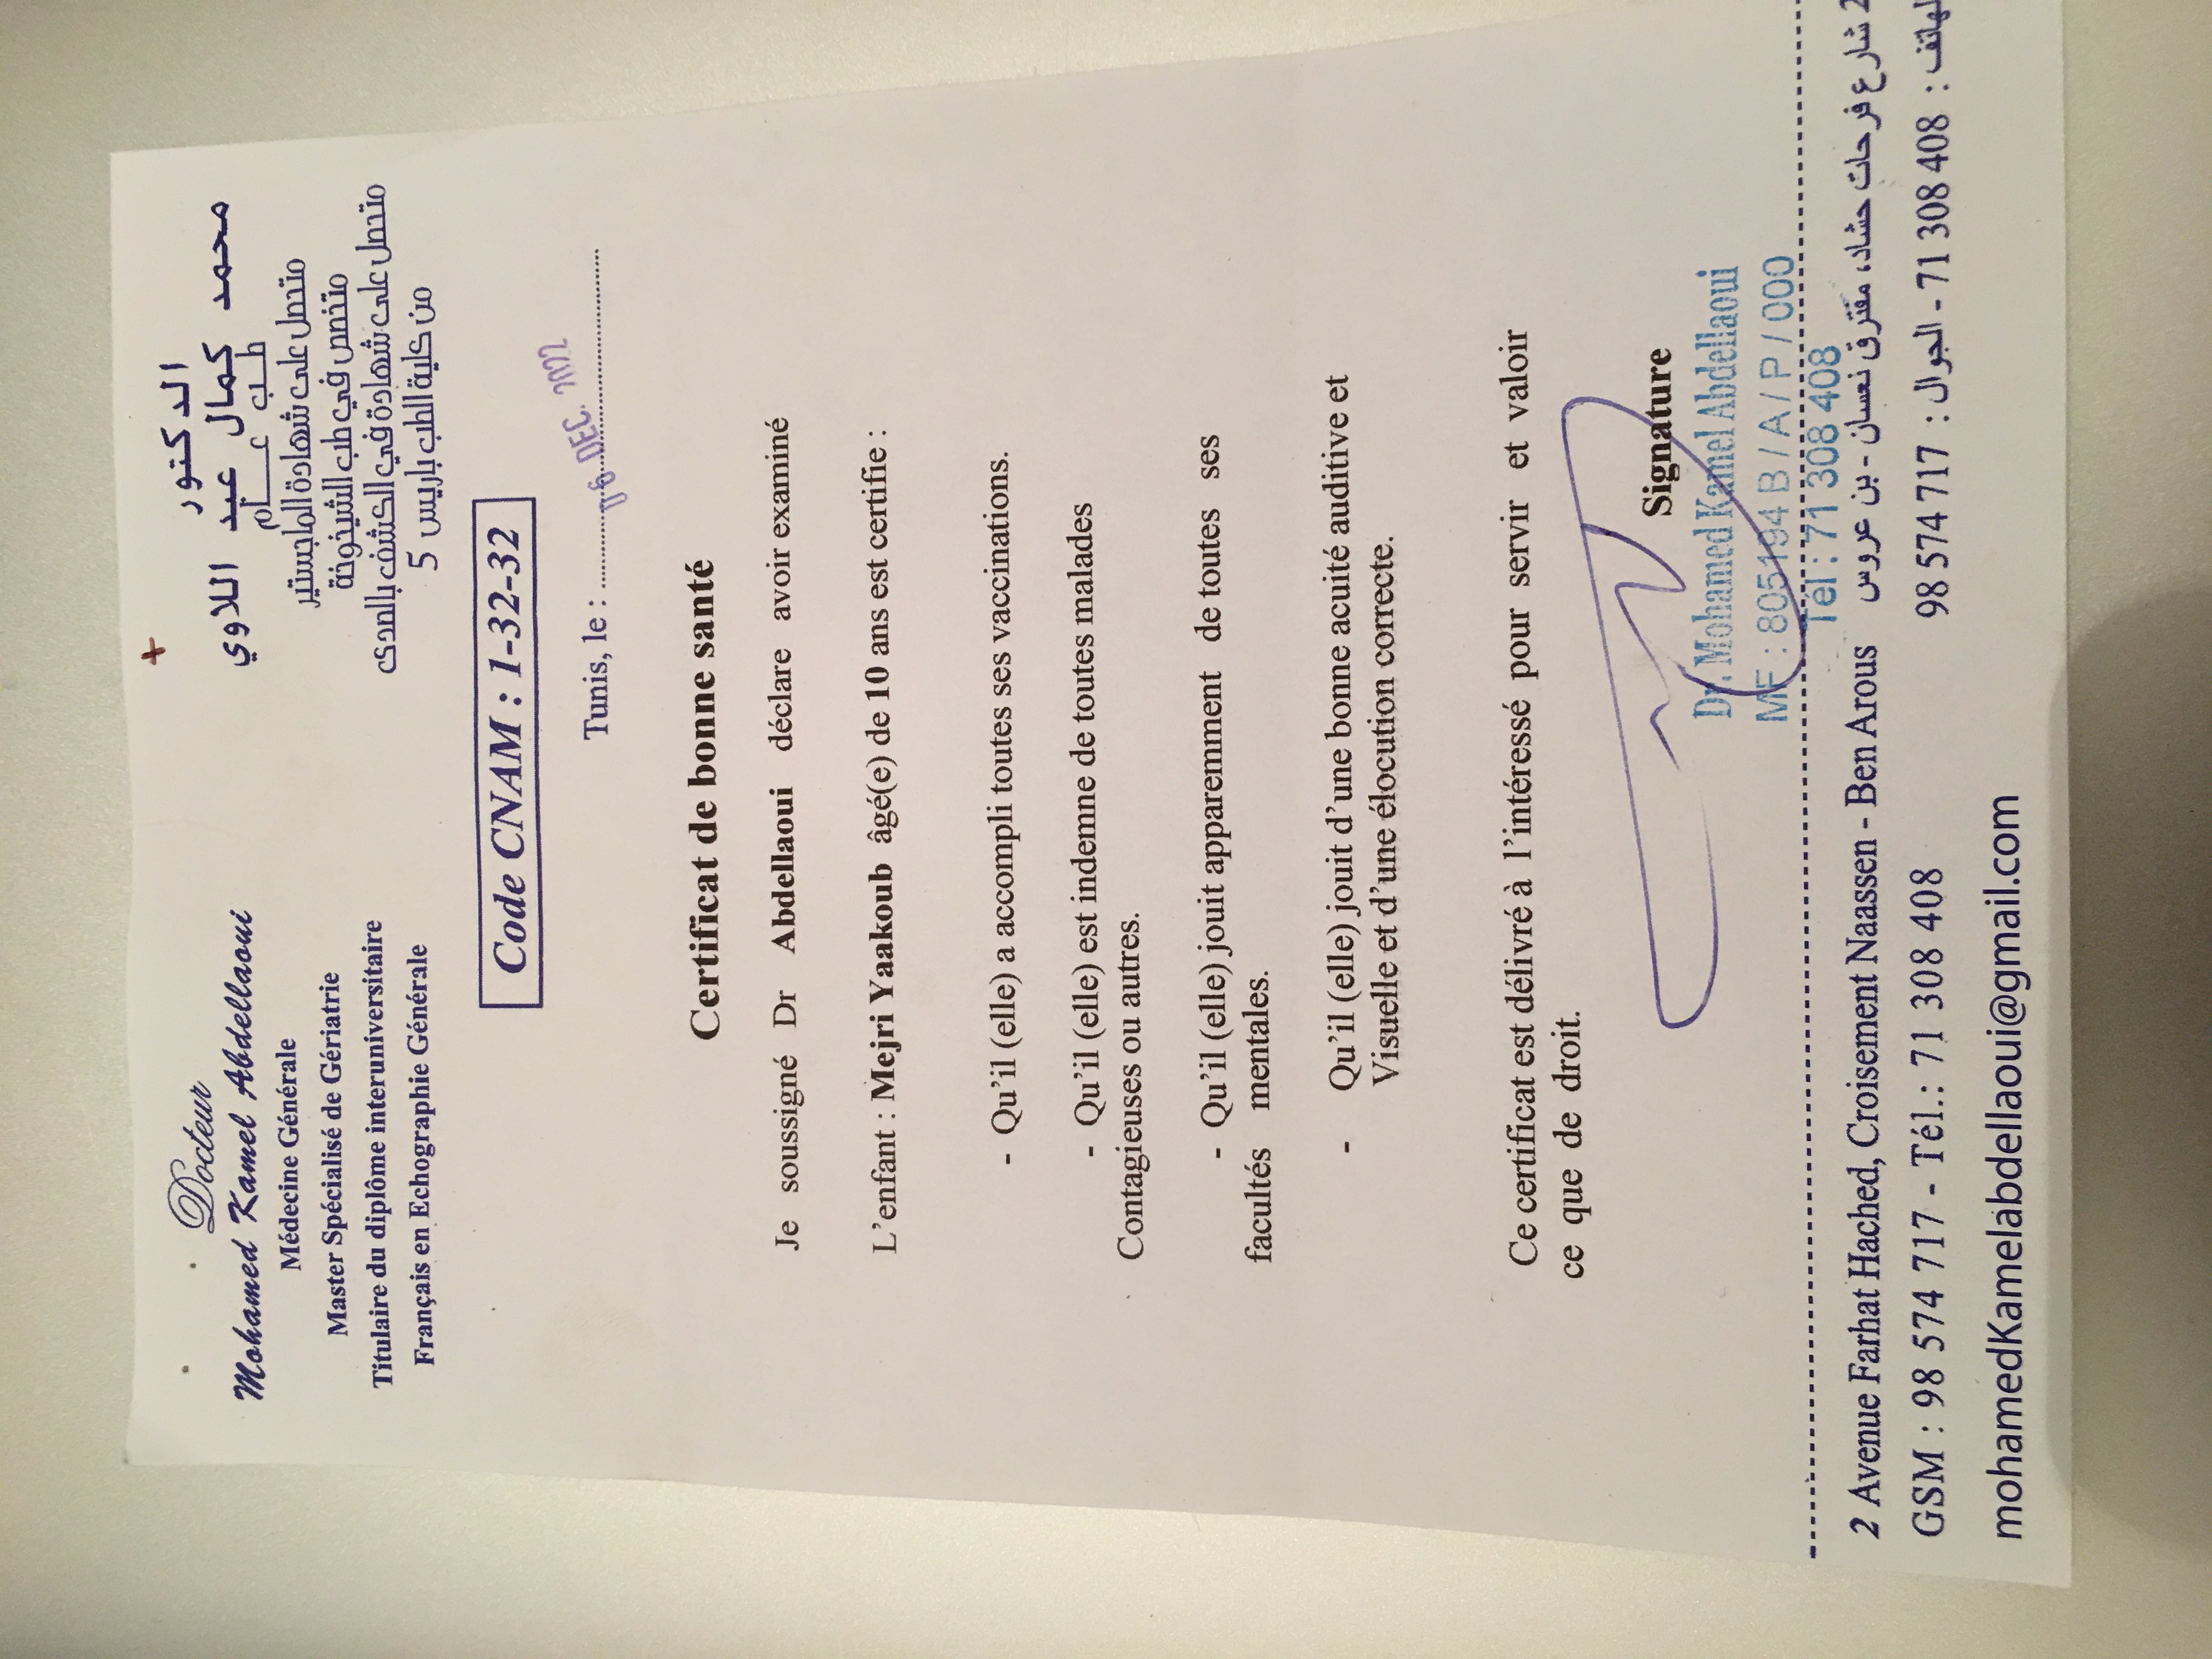 Docteur
Mohamed Kamel Abdellaoui
Médecine Générale
Master Spécialisé de Gériatrie
Titulaire du diplôme interuniversitaire
Français en Echographie Générale
الدكتور
محمد كمال عبد اللاوي
طب عام
متحصل على شهادة الماجستير
مختص في طب الشيخوخة
متحصل على شهادة في الكشف بالصدى
من كلية الطب باريس 5
Code CNAM : 1-32-32
Tunis, le : 06 DEC. 2022
Certificat de bonne santé
Je soussigné Dr Abdellaoui déclare avoir examiné
L'enfant : Mejri Yaakoub âgé(e) de 10 ans est certifie :
- Qu'il (elle) a accompli toutes ses vaccinations.
- Qu'il (elle) est indemne de toutes malades
Contagieuses ou autres.
- Qu'il (elle) jouit apparemment de toutes ses
facultés mentales.
- Qu'il (elle) jouit d'une bonne acuité auditive et
Visuelle et d'une élocution correcte.
Ce certificat est délivré à l'intéressé pour servir et valoir
ce que de droit.
Signature
Dr. Mohamed Kamel Abdellaoui
MF : 805194 B / A / P / 000
Tél : 71 308 408
2 Avenue Farhat Hached, Croisement Naassen - Ben Arous
2 شارع فرحات حشاد، مفترق نعسان - بن عروس
GSM : 98 574 717 - Tél.: 71 308 408
الهاتف : 71 308 408 - الجوال : 98 574 717
mohamedKamelabdellaoui@gmail.com